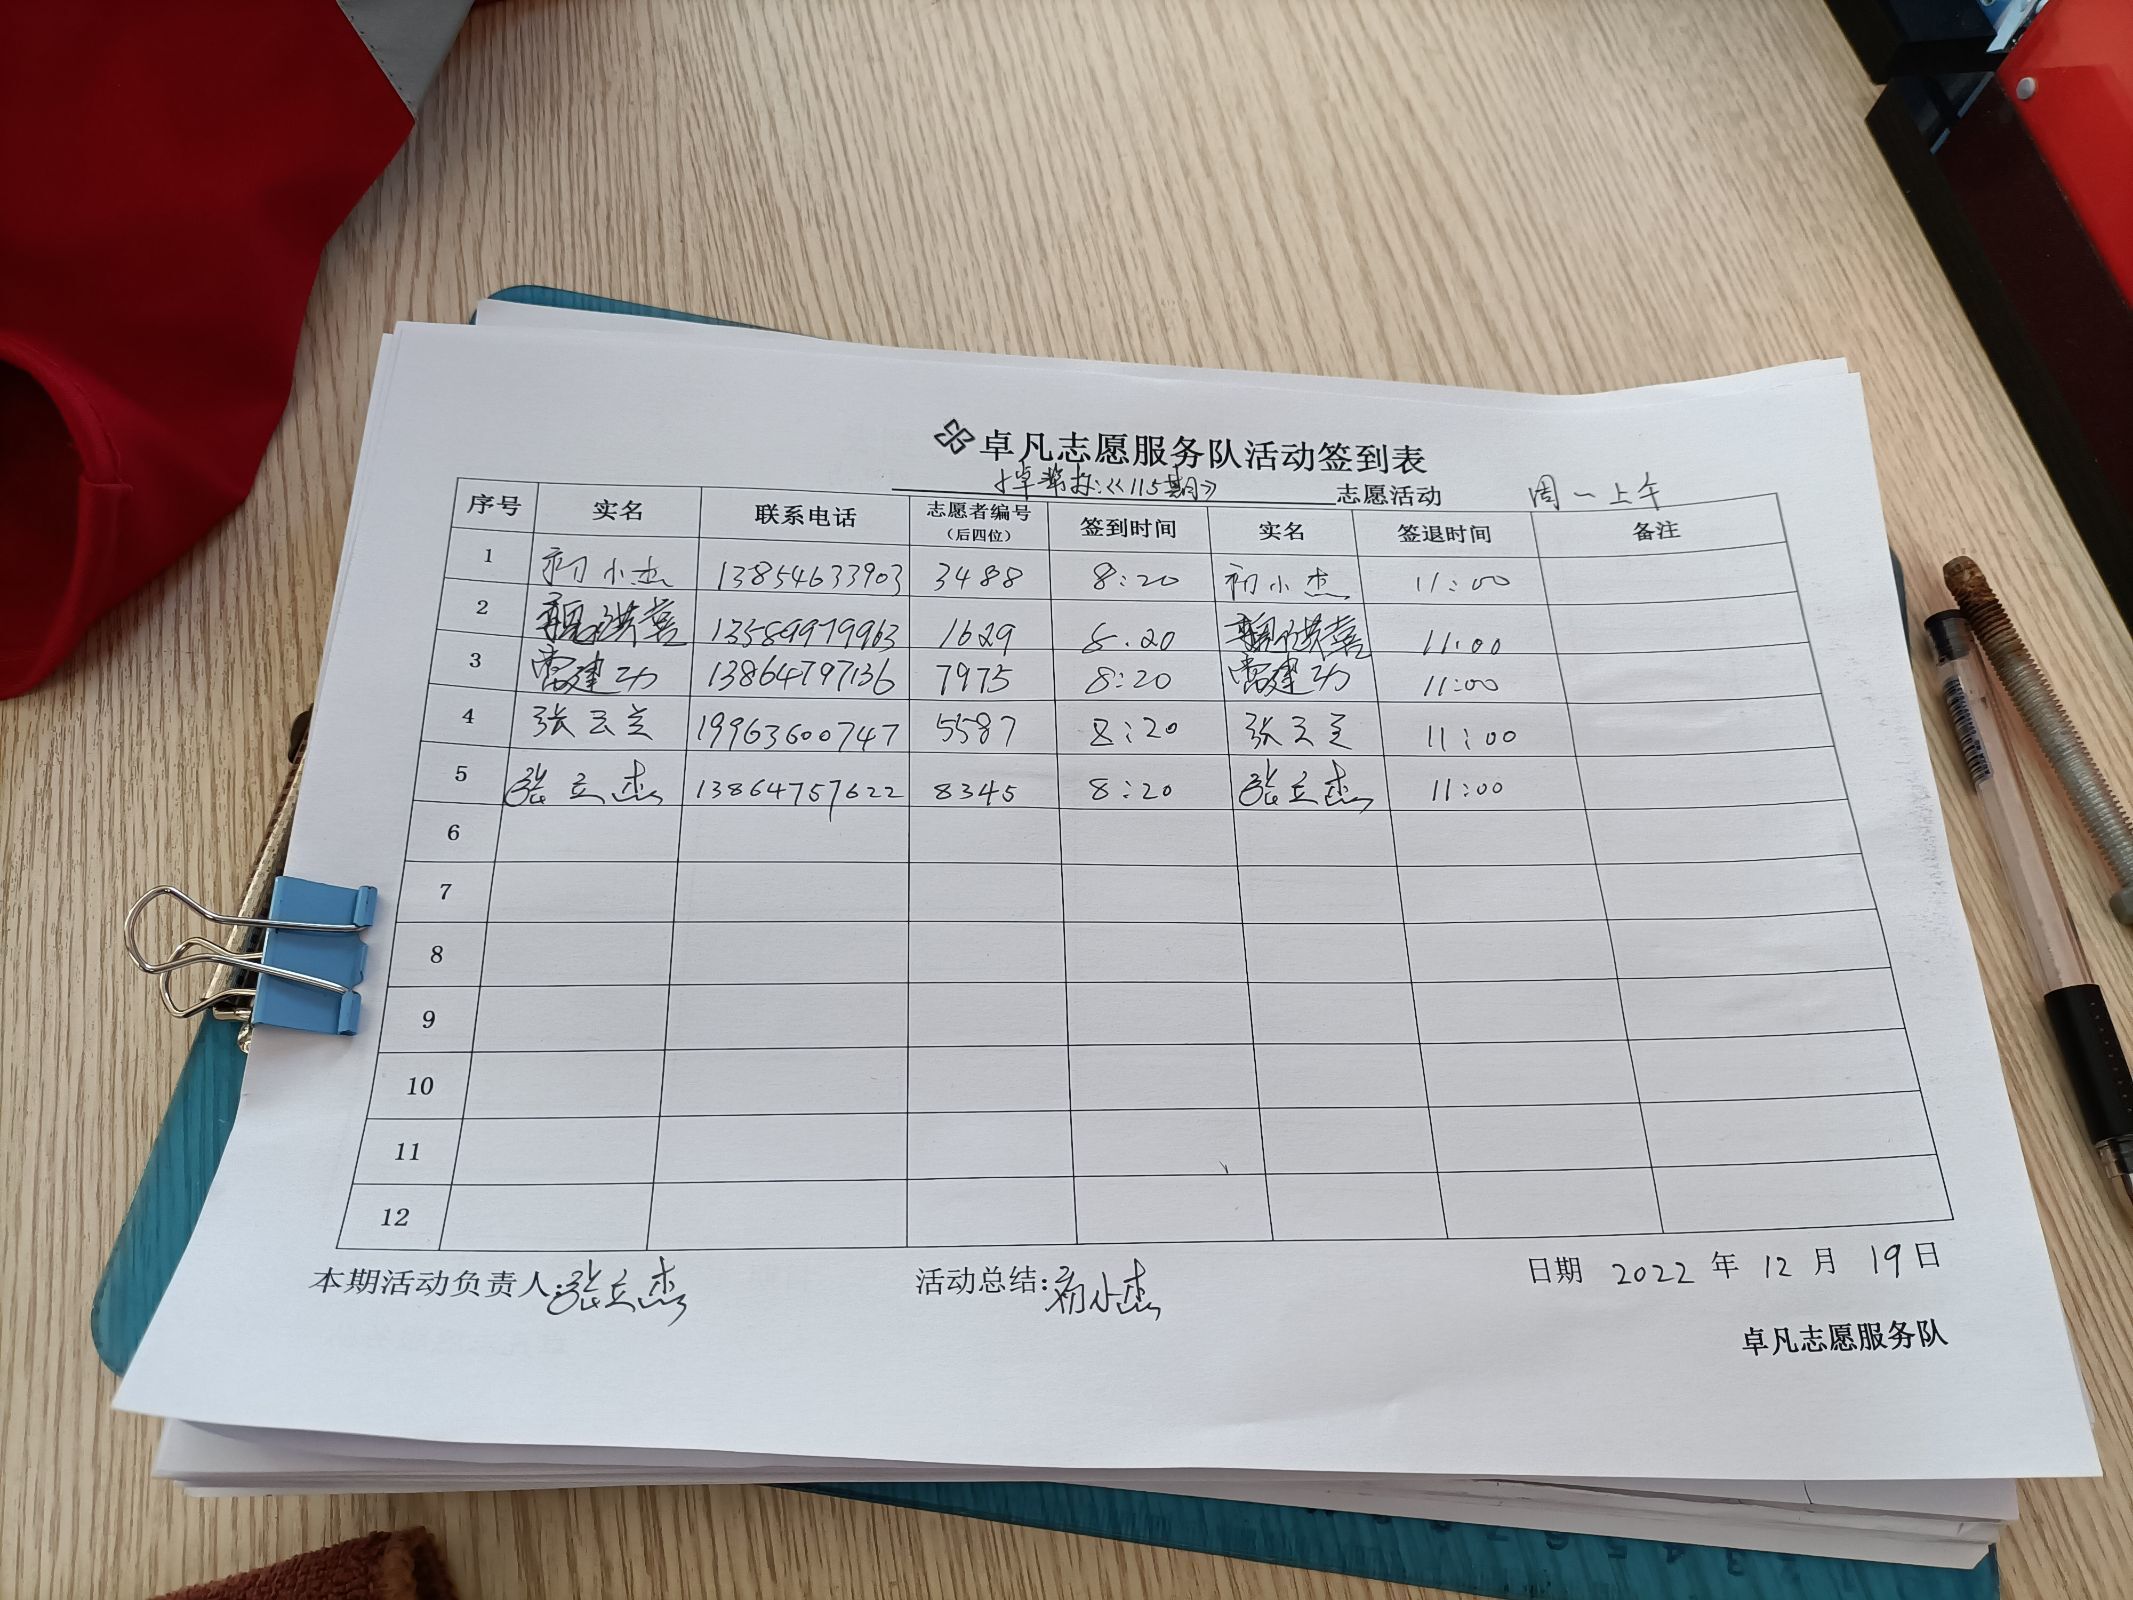 卓凡志愿服务队活动签到表
《115期》 志愿活动 周一上午
序号 实名 联系电话 志愿者编号（后四位） 签到时间 实名 签退时间 备注
1 初小杰 13854633903 3488 8:20 初小杰 11:00
2 魏洪喜 13589979963 1629 8.20 魏洪喜 11:00
3 常建功 13864797136 7975 8:20 常建功 11:00
4 张云兰 19963600747 5587 8:20 张云兰 11:00
5 张立杰 13864757622 8345 8:20 张立杰 11:00
6
7
8
9
10
11
12
本期活动负责人:张立杰 活动总结:初小杰 日期 2022 年 12 月 19 日
卓凡志愿服务队